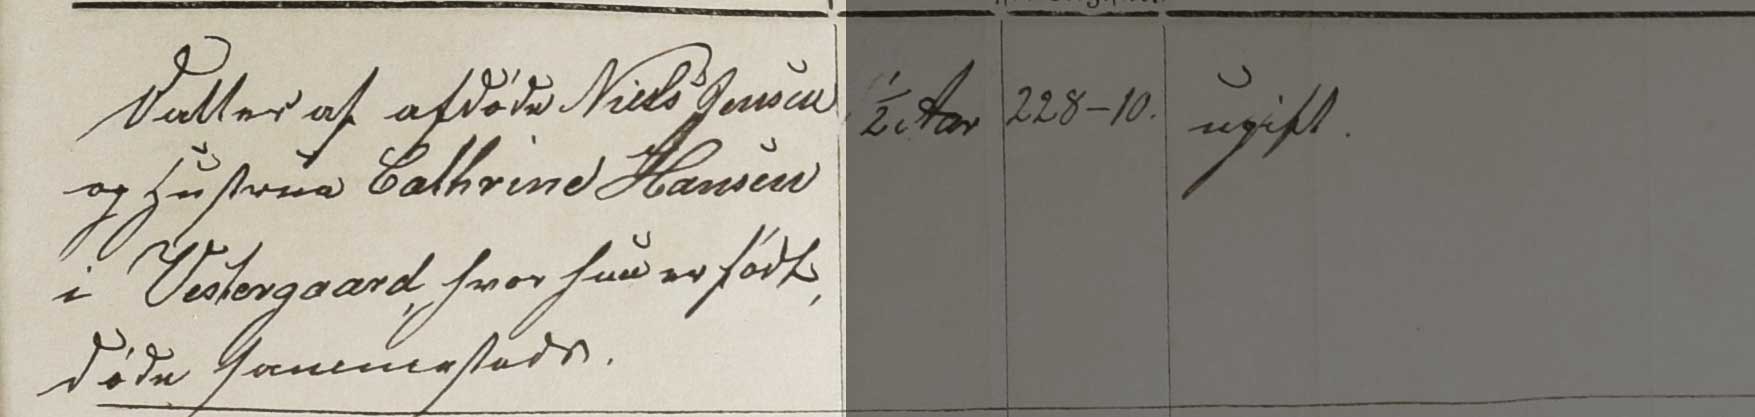 Datter af afdøde Niels Jensen
og Hustrue Cathrine Hansen
i Vestergaard, hvor hun er født,
døde sammesteds.
1/2 Aar
228-10.
ugift.